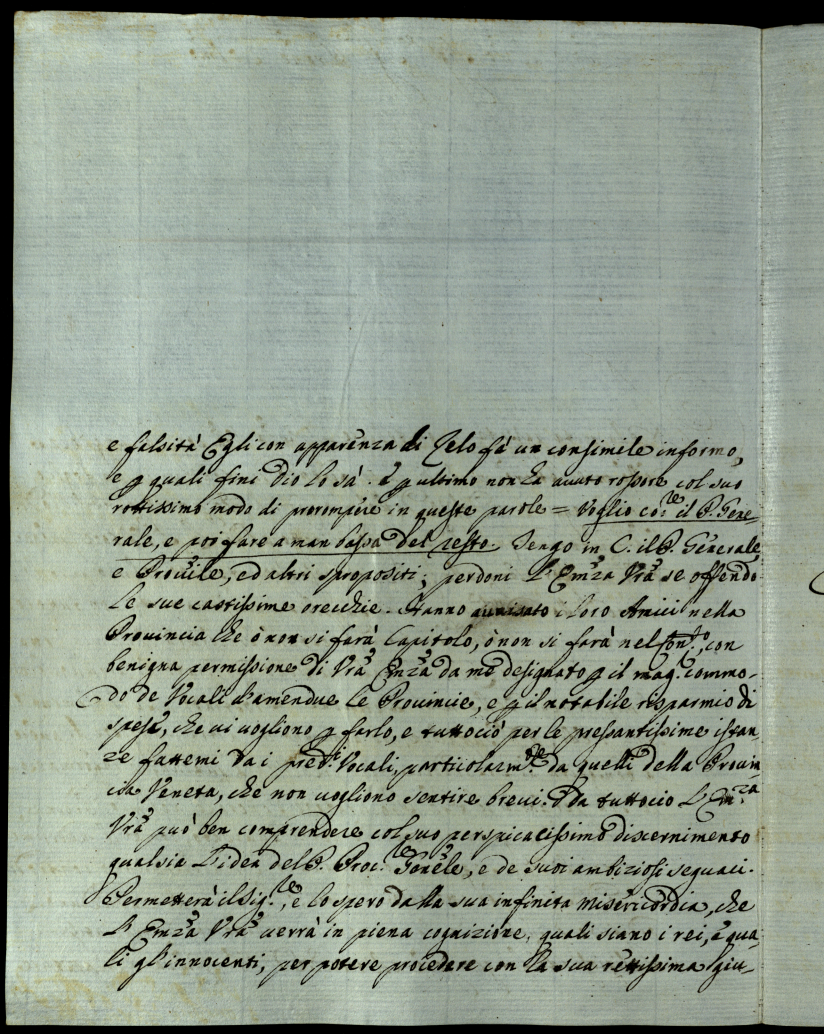 e falsità Egli con apparenza di Zelo fà un consimile informo,
e p quali fini Dio lo sà. E p ultimo non ha avuto rossore col suo
modo di prorompere in queste parole = Voglio il P. Gene-
rale, e poi fare a man bassa del resto. Tengo in C. il P. Generale,
e Prouile, ed altri spropositi; perdoni l'Emza Vrã se offendo
le sue castissime orecchie. Hanno auuisato i loro Amici nella
Prouincia che ò non si farà Capitolo, ò non si farà nel con
benigna permissione di Vrã Emza da me designato p il mag. commo-
do de Vocali d'amendue le Prouincie, e p il notabile risparmio di
spese, che ui uogliono p farlo, e tuttociò per le pressantissime istan-
ze fattemi da i pred.i Vocali, particolarm.te da quelli della Prouin-
cia Veneta, che non uogliono sentire breui. Da tuttocio l'Em.za
Vrã può ben comprendere col suo perspicacissimo discernimento
qual sia l'idea del P. Proc.re Genẽle, e de suoi ambiziosi seguaci.
Permetterà il Sig.re, e lo spero dalla sua infinita misericordia, che
l'Emza Vrã uerrà in piena cognizione, quali siano i rei, e qua-
li gl'innocenti, per potere procedere con la sua rettissima giu-